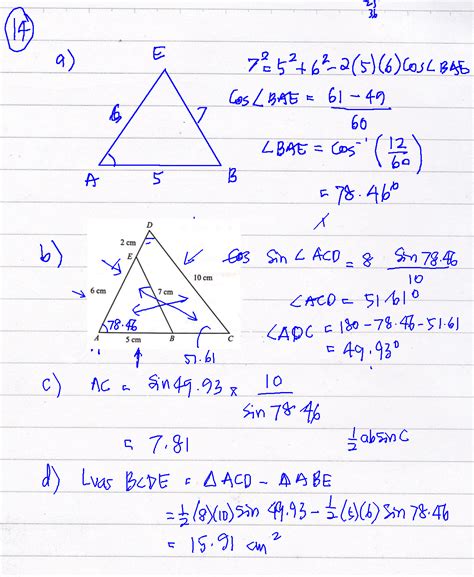 14
a)
E
6
7
A
5
B
7² = 5² + 6² - 2(5)(6) Cos∠BAE
Cos∠BAE = 61 - 49 / 60
∠BAE = Cos⁻¹ (12/60)
= 78.46°
b)
D
2 cm
E
10 cm
6 cm
7 cm
78.46
A
5 cm
B
C
51.61
Sin ∠ACD = 8 Sin 78.46 / 10
∠ACD = 51.61°
∠ADC = 180 - 78.46 - 51.61
= 49.93°
c) AC = Sin 49.93 × 10 / Sin 78.46
= 7.81
½ ab Sin C
d) Luas BCDE = △ACD - △ABE
= ½ (8)(10) Sin 49.93 - ½ (5)(6) Sin 78.46
= 15.91 cm²